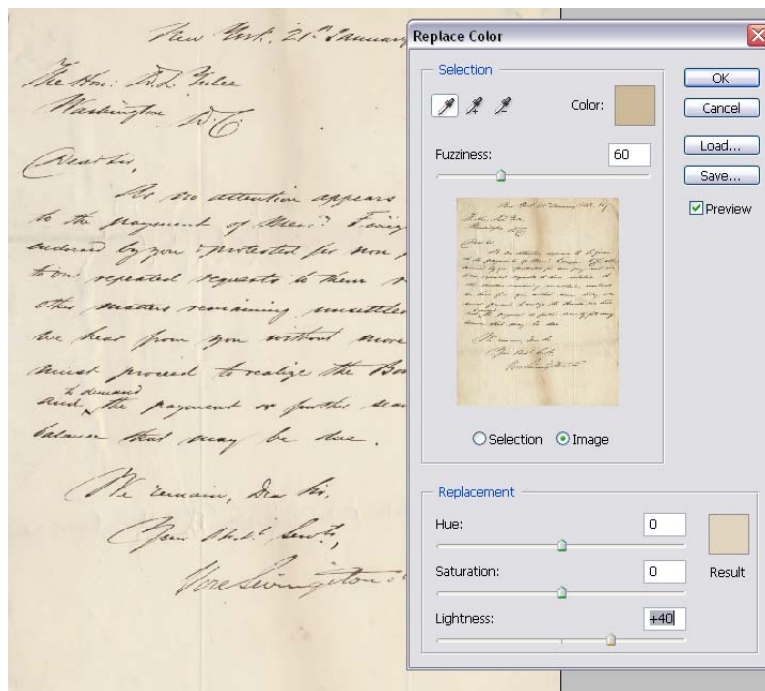 New York, 21st January
The Hon: D. L. Yulee
Washington
D.C.
Dear Sir,
As no attention appears
to the payment of Mess.rs
endorsed by you & protested for non
to our repeated requests to them
other matters remaining unsettled
we hear from you without more
must proceed to realize the
to demand
and the payment or further
balance that may be due.
We remain, Dear Sir,
Your Obdt Servts,
Replace Color
Selection
Color:
Fuzziness:
60
Selection
Image
Replacement
Hue:
0
Saturation:
0
Result
Lightness:
+40
OK
Cancel
Load...
Save...
Preview